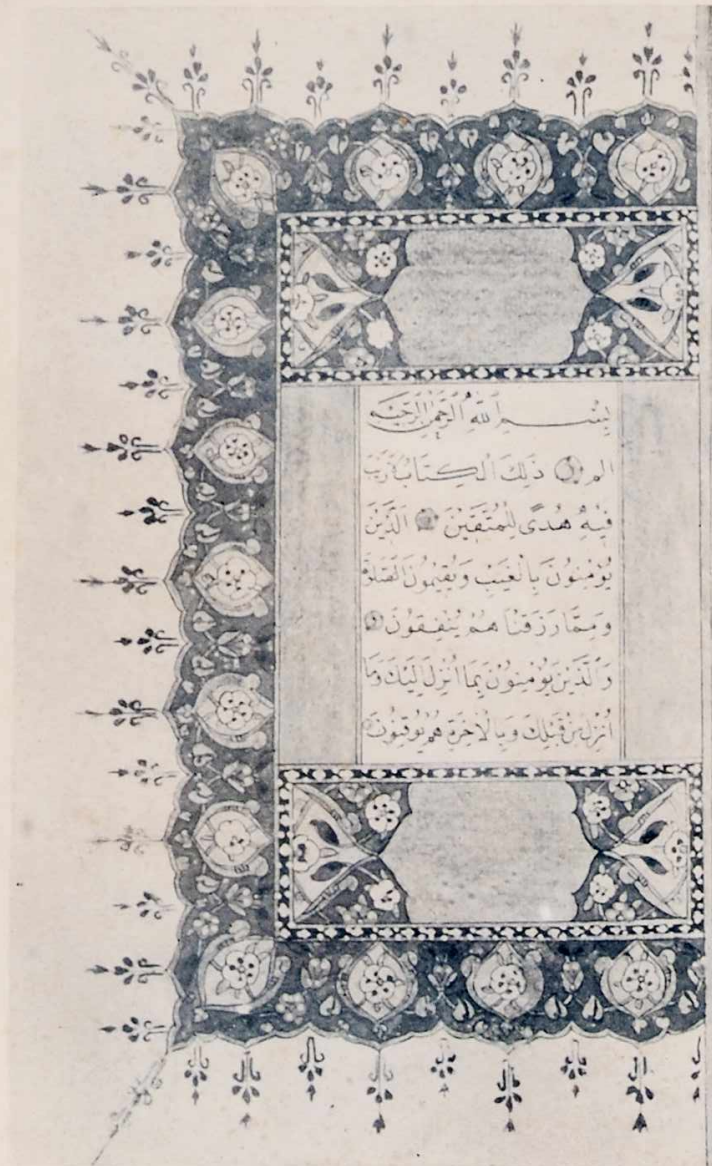 بِسْمِ اللّٰهِ الرَّحْمٰنِ الرَّحِيْمِ
الم ذٰلِكَ الْكِتَابُ لَا رَيْبَ
فِيْهِ هُدًى لِلْمُتَّقِيْنَ الَّذِيْنَ
يُؤْمِنُوْنَ بِالْغَيْبِ وَيُقِيْمُوْنَ الصَّلٰوةَ
وَمِمَّا رَزَقْنَا هُمْ يُنْفِقُوْنَ
وَالَّذِيْنَ يُؤْمِنُوْنَ بِمَا اُنْزِلَ اِلَيْكَ وَمَا
اُنْزِلَ مِنْ قَبْلِكَ وَبِالْاٰخِرَةِ هُمْ يُوْقِنُوْنَ